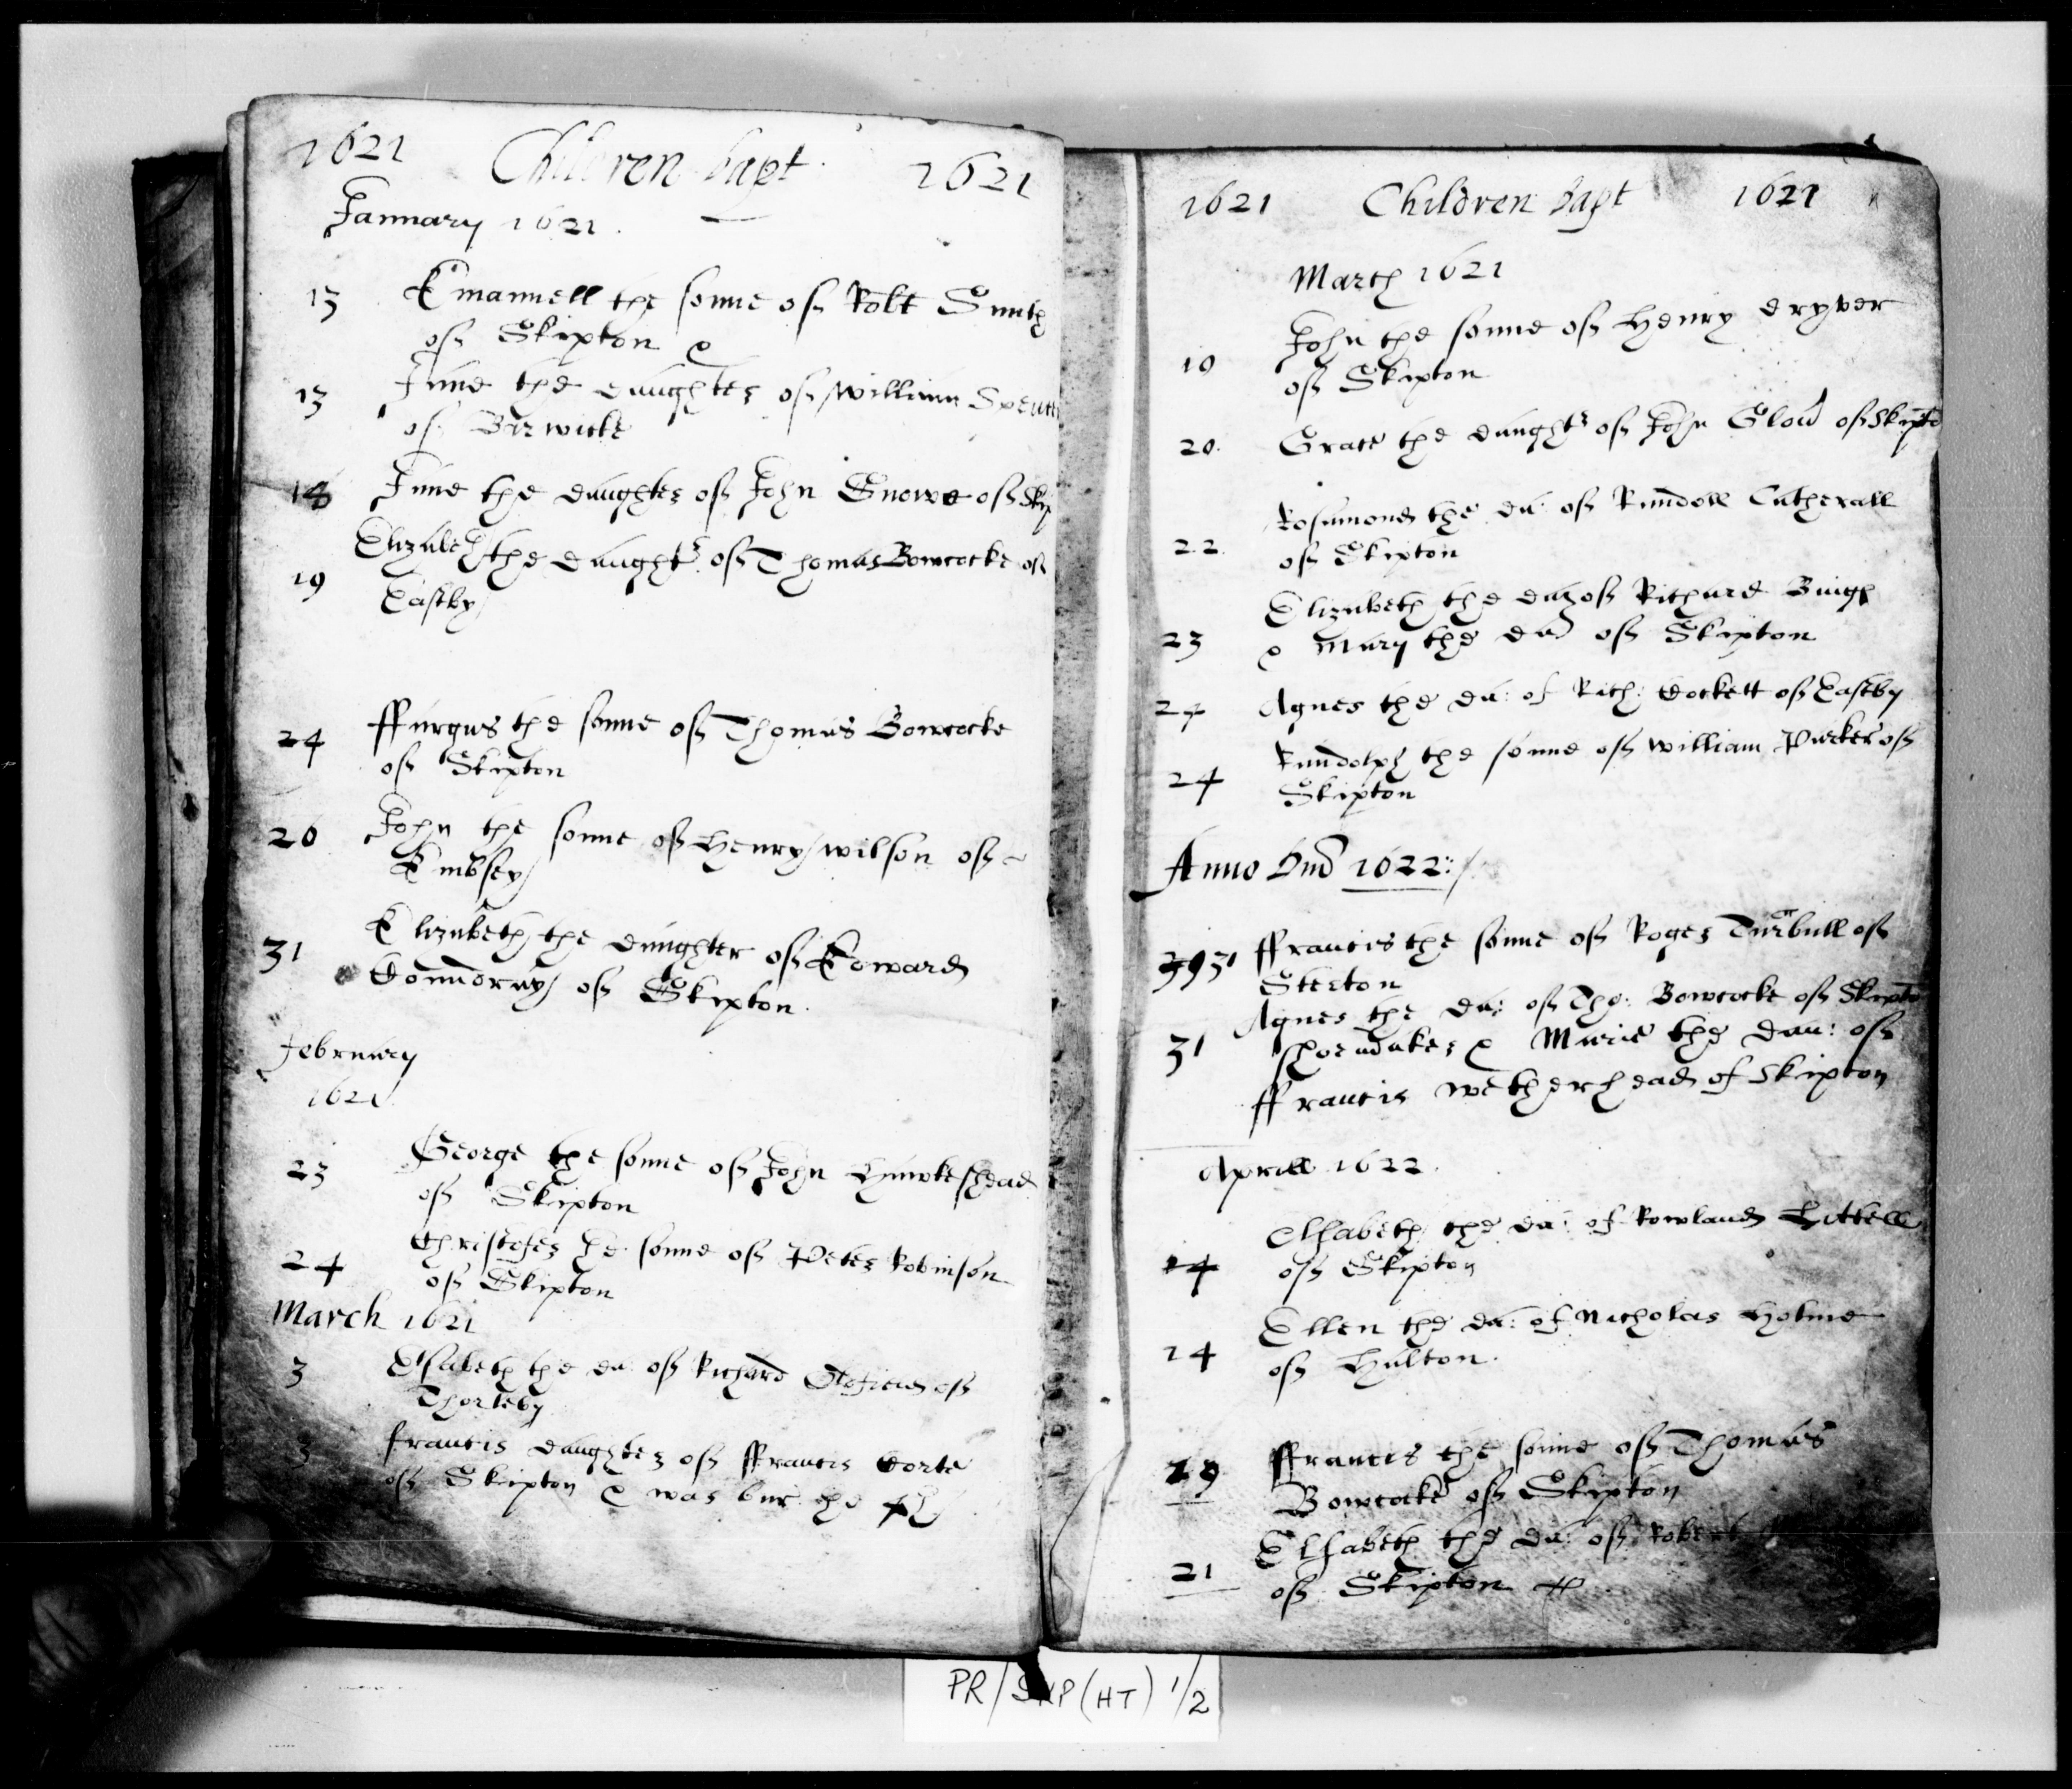 1621 Children bapt 1621
January 1621
13 Emanuell the sonne of Robt Smith
of Skipton &
13 Jane the daughter of William
of Barwicke
18 Jane the daughter of John Snowe of Skip
Elizabeth the daughtr of Thomas Bowcocke of
19 Eastby
24 ffargus the sonne of Thomas Bowcocke
of Skipton
26 John the sonne of Henry Wilson of
Embsey
31 Elizabeth the daughter of Edward
of Skipton
February
1621
23 George the sonne of John Hawkeshead
of Skipton
24 Christofer the sonne of Peter Robinson
of Skipton
March 1621
3 Elsabeth the da: of Richard Oldfield of
Thorleby
3 francis daughter of ffrancis
of Skipton & was bur: the 4th
1621 Children bapt 1621
March 1621
John the sonne of Henry dryver
10 of Skipton
20 Grace the daughtr of John of Skipto
Rosamond the da: of Randoll Catherall
22 of Skipton
Elizabeth the da: of Richard
23 & Mary the da of Skipton
24 Agnes the da: of Rich: Cockett of Eastby
Randolph the sonne of William Parker of
24 Skipton
Anno Dnd 1622:/
31 ffrancis the sonne of Roger Turbull of
Steton
Agnes the da: of Tho: Bowcocke of Skipto
31 shoemaker & Marie the dau: of
ffrancis wetherhead of Skipton
Aprill 1622
Elsabeth the da: of Rowland
14 of Skipton
Ellen the da: of Nicholas Holme
14 of Halton
19 ffrancis the sonne of Thomas
Bowcocke of Skipton
Elsabeth the da: of Robert
21 of Skipton
PR/SKP (HT) 1/2